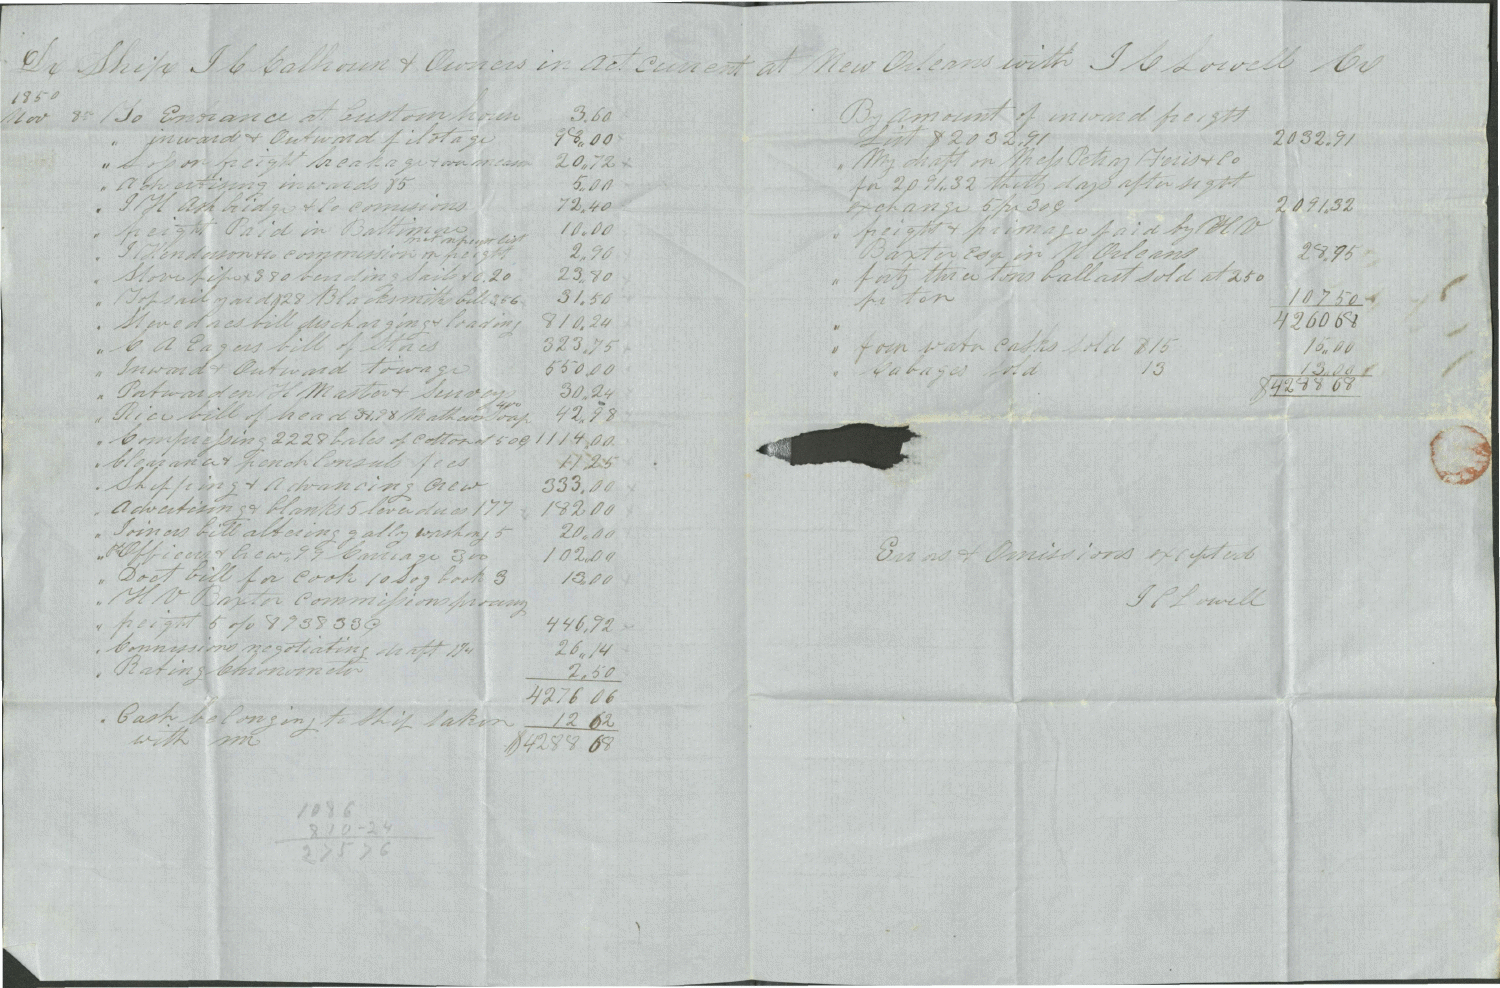 Dr Ship J C Calhoun & Owners in act current at New Orleans with J C Lowell Cr
1850
Nov To Entrance at Custom house 3.60
" inward & Outward pilotage 98.00
" freight breakage 20.72
" Advertising inwards $5 5.00
" J H Ashbridge & Co comissions 72.40
" freight Paid in Baltimore 10.00
" J Henderson commission on freight 2.90
" Stove pipe 3.80 bending sails 20 23.80
" Topsail yard $28 Blacksmiths bill 3.56 31.50
" Stevedores bill discharging & loading 810.24
" C A Eagers bill of Stores 323.75
" Inward & Outward towage 550.00
" Portwarden H Master & Survey 30.24
" Rice bill of bread 31.98 42.98
" Compressing 2228 bales of cotton at 50c 1114.00
" Clearance & French Consul fees 11.25
" Shipping & Advancing Crew 333.00
" Advertising & blanks 5 levee dues 177 182.00
" Joiners bill altering gally 20.00
" Officers & Crew 99 Carriage 3.00 102.00
" Doct bill for Cook 10 Log book 3 13.00
" H V Baxter Commissions procuring
" freight 5 o/o 8938 33c 446.92
" Commissions negotiating draft 26.14
" Rating Chronometer 2.50
4276 06
" Cash belonging to Ship taken 12 62
with me $4288 68
1086
810-24
275 76
By amount of inward freight
List $2032.91 2032.91
" My draft on Mess
for 2091.32 thirty days after sight
exchange 2091.32
" freight & primage paid by H V
Baxter Esq in N Orleans 28.95
" forty three tons ballast sold at 250
pr ton 107 50
4260 68
" four water casks sold $15 15.00
" Cabages sold 13 13.00
$4288 68
Erros & Omissions excepted
J C Lowell